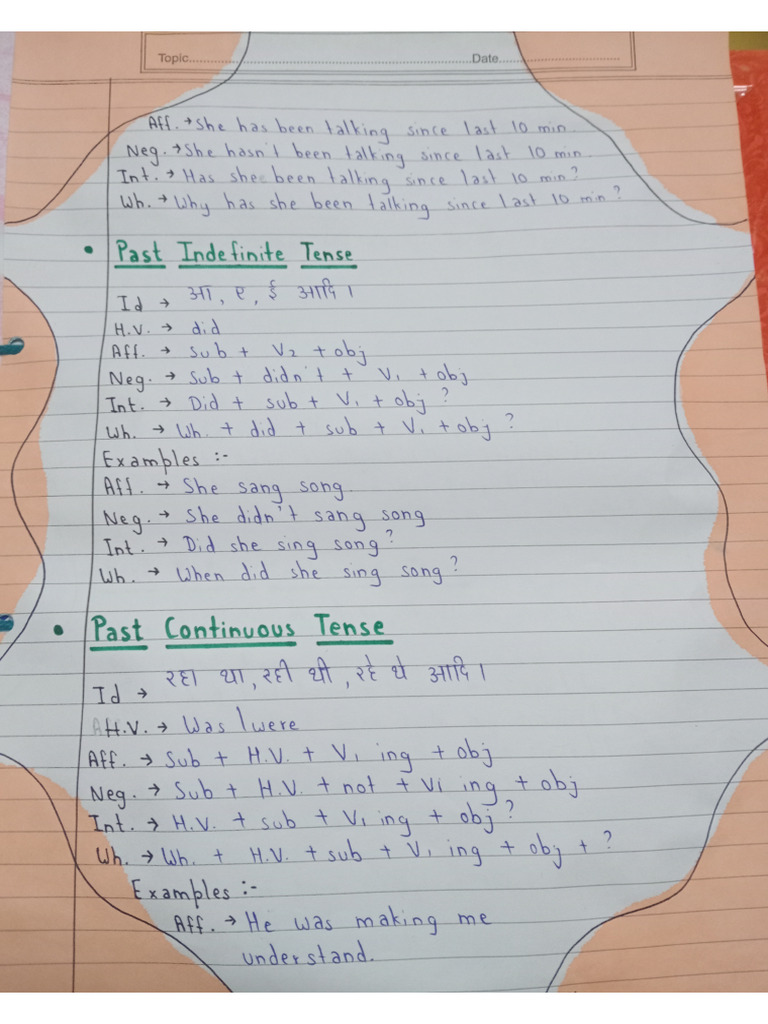 Topic.......................................Date.......................
Aff. → She has been talking since last 10 min.
Neg. → She hasn't been talking since last 10 min.
Int. → Has shee been talking since last 10 min?
Wh. → Why has she been talking since last 10 min?
• Past Indefinite Tense
Id → आ, ए, ई आदि।
H.V. → did
Aff. → Sub + V2 + obj
Neg. → Sub + didn't + V1 + obj
Int. → Did + sub + V1 + obj?
Wh. → Wh. + did + sub + V1 + obj?
Examples :-
Aff. → She sang song.
Neg. → She didn't sang song
Int. → Did she sing song?
Wh. → When did she sing song?
• Past Continuous Tense
Id → रहा था, रही थी, रहे थे आदि।
H.V. → Was/were
Aff. → Sub + H.V. + V1 ing + obj
Neg. → Sub + H.V. + not + Vi ing + obj
Int. → H.V. + sub + V1 ing + obj?
Wh. → Wh. + H.V. + sub + V1 ing + obj + ?
Examples :-
Aff. → He was making me
understand.